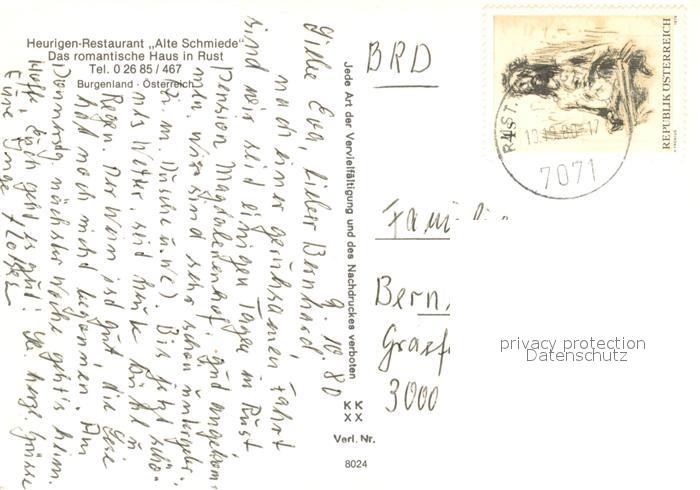 Heurigen-Restaurant „Alte Schmiede"
Das romantische Haus in Rust
Tel. 0 26 85 / 467
Burgenland - Österreich
9. 10 80
Liebe Eva, lieber Bernhard,
nach einer geruhsamen Fahrt
sind wir seit einigen Tagen in Rust
Pension Magdalenenhof, gut angekom-
men. Wir sind sehr schön untergebr.
(Zi. m. Dusche u. WC). Bis jetzt schö-
nes Wetter, seit heute kühl u
Regen. Der Wein ist gut, die Lese
hat noch nicht begonnen. Am
Donnerstag nächster Woche geht's heim.
Hoffe, Euch geht es gut! Se. herzl. Grüsse
Eure Inge
Jede Art der Vervielfältigung und des Nachdruckes verboten
KK
XX
Verl. Nr.
8024
BRD
REPUBLIK ÖSTERREICH
RUST
7071
Fami
Bern
Graef
3000
privacy protection
Datenschutz